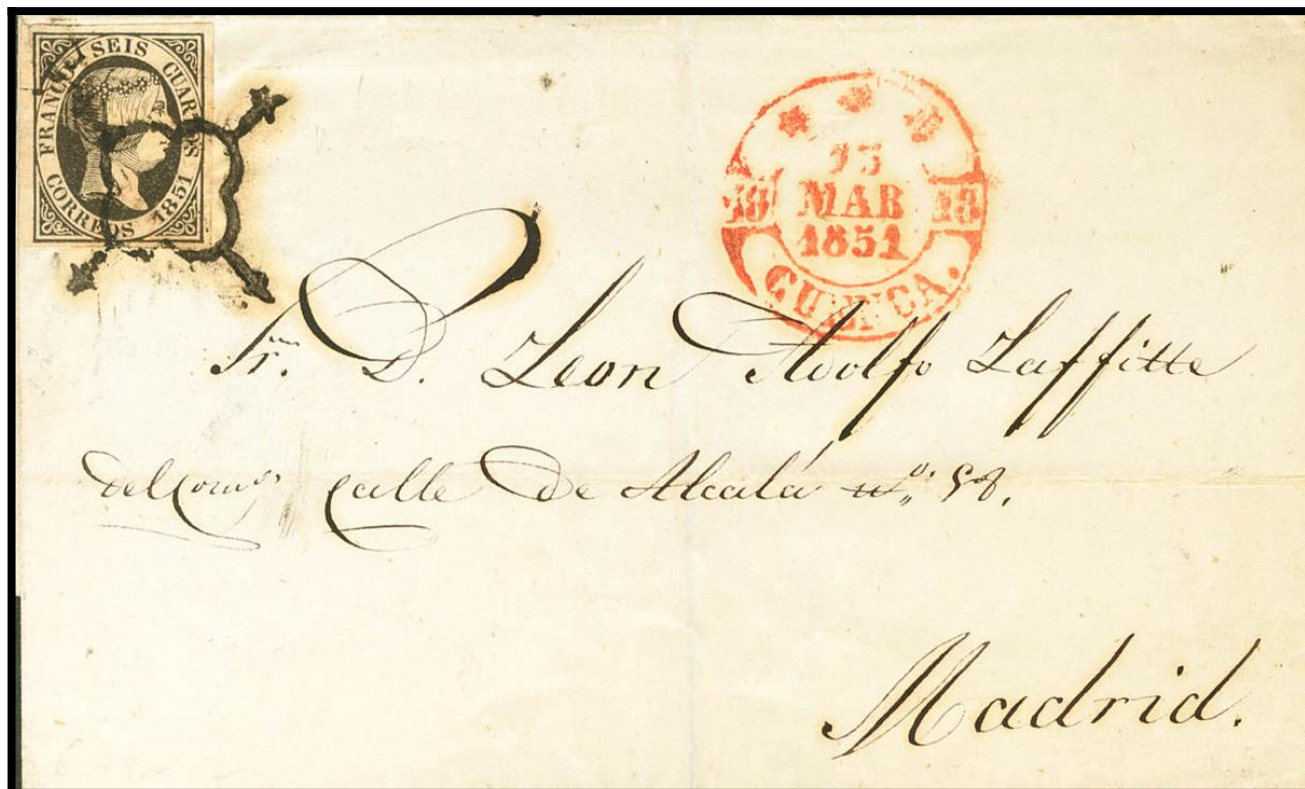 FRANCO SEIS CUARTOS
CORREOS 1851
13
MAR
1851
18 18
CUENCA.
Sr. D. Leon Adolfo Laffitte
del Comº calle de Alcalá nº 58.
Madrid.